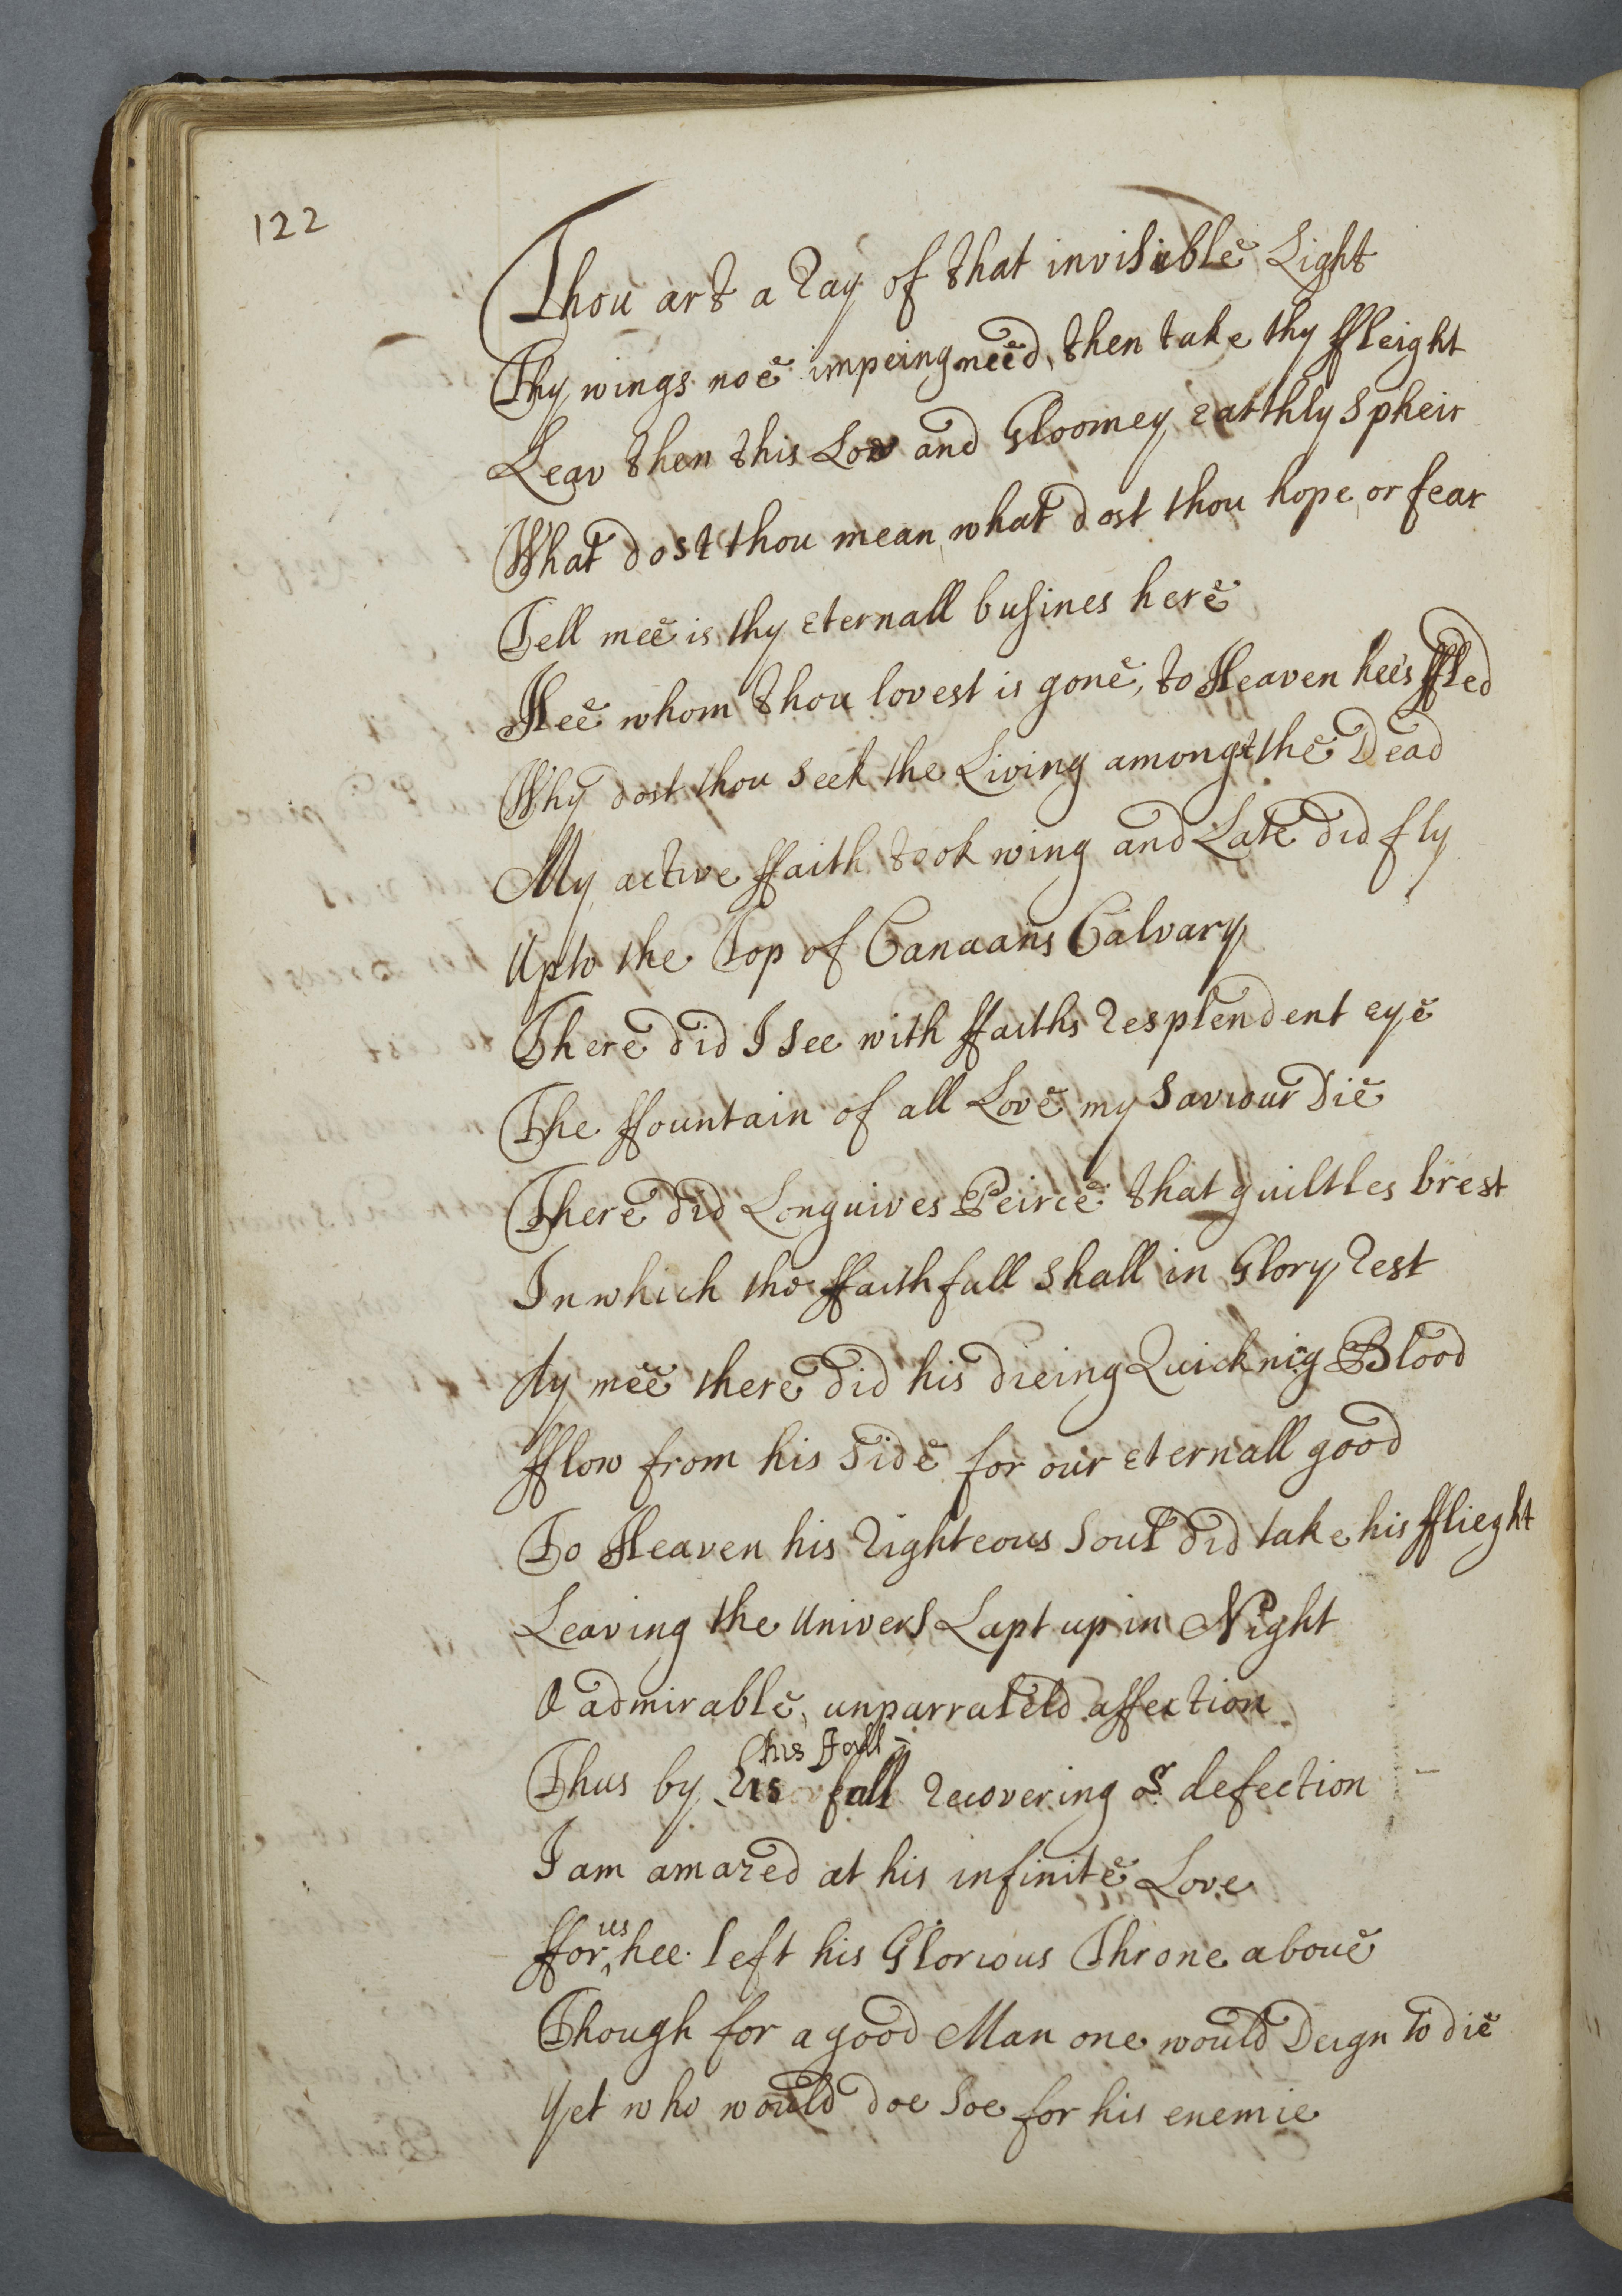 122
Thou art a Ray of that invisible Light
Thy wings noe impeing need, then take thy ffleight
Leav then this Low and Gloomey earthly Spheir
What dost thou mean, what dost thou hope, or fear
Tell mee is thy eternall busines here
Hee whom thou lovest is gone, to Heaven hee's ffled
Why dost thou seek the Living amongst the Dead
My active ffaith took wing and Late did fly
Up to the Top of Canaans Calvary
There did I see with ffaiths Resplendent eye
The ffountain of all Love my Saviour Die
There did Longuives Peirce that guiltles brest
In which the ffaithfull shall in Glory Rest
Ay mee there did his dieing Quicknig Blood
fflow from his Side for our eternall good
To Heaven his Righteous Soul did take his fflieght
Leaving the Univers Lapt up in Night
O admirable, unparraleld affection
his Fall
Thus by fall Recovering or defection
I am amazed at his infinite Love
us
ffor hee left his Glorious Throne above
Though for a good Man one would Deign to die
Yet who would doe soe for his enemie